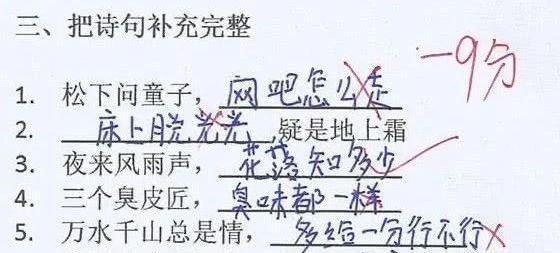 三、把诗句补充完整
-9分
1. 松下问童子，网吧怎么走
2. 床上脱光光,疑是地上霜
3. 夜来风雨声，花落知多少
4. 三个臭皮匠，臭味都一样
5. 万水千山总是情，多给一分行不行